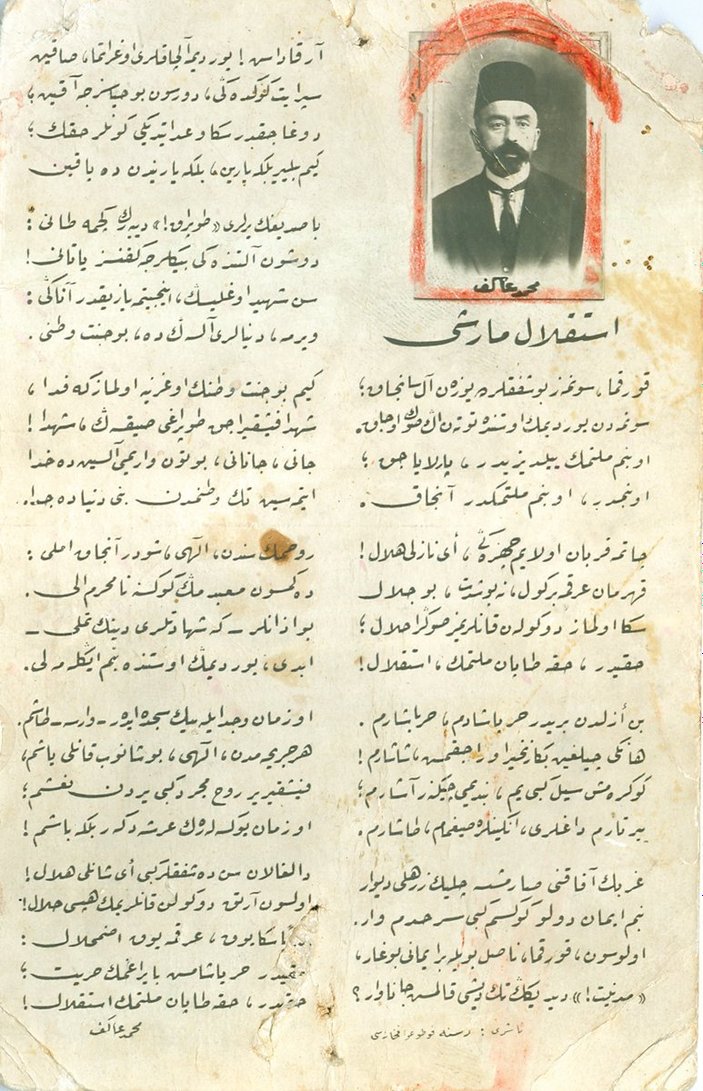 محمد عاكف
استقلال مارشى
قورقما، سونمز بو شفقلرده يوزن آل سانجاق؛
سونمدن يورديمك اوستنده توتن اڭ صوڭ اوجاق.
او بنم ملتمك ييلديزيدر، پارلاياجق؛
او بنمدر، او بنم ملتمكدر آنجاق.
چاتمه قربان اولايم چهره‌ڭى، أى نازلى هلال!
قهرمان عرقمه بر كول، نه بو شدت، بو جلال
سكا اولماز دوكولن قانلريمز صوڭرا حلال؛
حقيدر، حقه طاپان ملتمك، استقلال!
بن أزلدن بريدر حر ياشادم، حر ياشارم.
هانكى چيلغين بكا زنجير اوراجقمش، شاشارم!
كوكره‌مش سيل كبى يم، بنديمى چيكنر آشارم؛
ييرتارم داغلرى، انكينلره صيغمام، طاشارم.
غربك آفاقنى صارمشسه چليك زرهلى ديوار
بنم ايمان دولو كوكسم كبى سرحدم وار.
اولوسون، قورقما، ناصل بويله بر ايمانى بوغار،
«مدنيت!» ديديكك تك ديشى قالمش جاناوار؟
ناشرى : رسنه فوطوغرافخانه‌سى
آرقاداش! يورديمه آلچاقلرى اوغراتما، صاقين
سپر ايت كوكده‌كى، دورسون بو حياسزجه آقين؛
دوغاجقدر سكا وعد ايتديكى كونلر حقك؛
كيم بيلير بلكه يارين، بلكه ياريندن ده ياقين
باصديغك يرلرى «طوپراق!» ديه‌رك كچمه طانى :
دوشون آلتنده‌كى بيكلرجه كفنسز ياتانى!
سن شهيد اوغليسك، اينجيتمه يازيقدر آتاكى؛
ويرمه، دنيالرى آلسه‌ڭ ده، بو جنت وطنى.
كيم بو جنت وطنك اوغرينه اولماز كه فدا،
شهدا فيشقيراجق طوپراغى صيقسه‌ڭ، شهدا!
جانى، جانانى، بوتون واريمى آلسين ده خدا
ايتمه‌سين تك وطنمدن بنى دنياده جدا.
روحمك سندن، آلهى، شودر آنجاق املى :
دكمسون معبدمڭ كوكسنه نامحرم الى.
بو اذانلر ــ كه شهادتلرى دينك تملى ــ
ابدى، يورديمڭ اوستنده بنم ايكله‌ملى.
او زمان وجد ايله بيك سجده ايدر ــ وارسه ــ طاشم.
هر جريحه‌مدن، آلهى، بوشانوب قانلى ياشم،
فيشقيرير روح مجرد كبى يردن نعشم؛
او زمان يوكسله‌رك عرشه دكر بلكه باشم!
دالغالان سن ده شفقلر كبى أى شانلى هلال!
اولسون آرتق دوكولن قانلريمك هپسى حلال!
سكا يوق، عرقمه يوق اضمحلال :
حقيدر حر ياشامش بايراغمك حريت؛
حقيدر، حقه طاپان ملتمك استقلال!
محمد عاكف